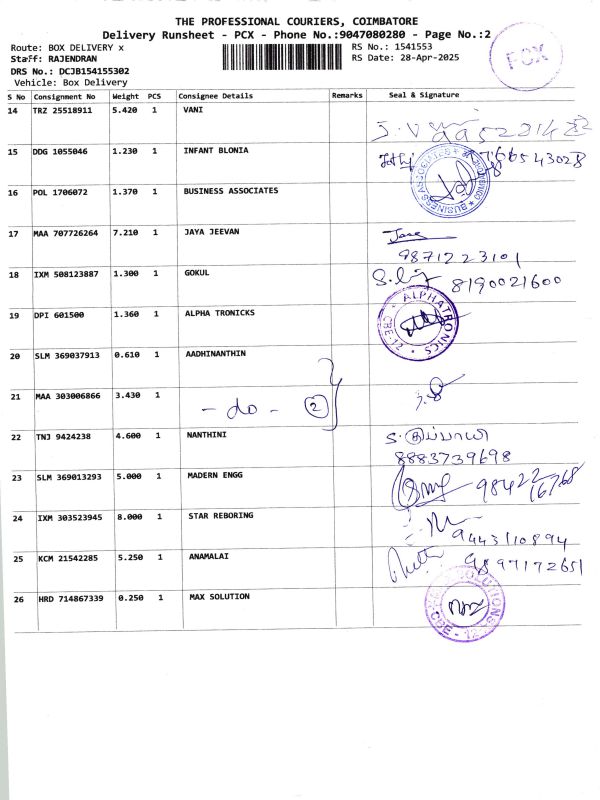 THE PROFESSIONAL COURIERS, COIMBATORE
Delivery Runsheet - PCX - Phone No.:9047080280 - Page No.:2
Route: BOX DELIVERY x RS No.: 1541553
Staff: RAJENDRAN RS Date: 28-Apr-2025
PCX
DRS No.: DCJB154155302
Vehicle: Box Delivery
S No Consignment No Weight PCS Consignee Details Remarks Seal & Signature
14 TRZ 25518911 5.420 1 VANI
15 DDG 1055046 1.230 1 INFANT BLONIA
16 POL 1706072 1.370 1 BUSINESS ASSOCIATES
BUSINESS ASSOCIATES
17 MAA 707726264 7.210 1 JAYA JEEVAN
9871223101
18 IXM 508123887 1.300 1 GOKUL 8190021600
19 DPI 601500 1.360 1 ALPHA TRONICKS
ALPHATRONICS CBE-12
20 SLM 369037913 0.610 1 AADHINANTHIN
21 MAA 303006866 3.430 1
- do - 2
22 TNJ 9424238 4.600 1 NANTHINI
8883739698
23 SLM 369013293 5.000 1 MADERN ENGG 98422 16768
24 IXM 303523945 8.000 1 STAR REBORING
9443110894
25 KCM 21542285 5.250 1 ANAMALAI 9897172651
26 HRD 714867339 0.250 1 MAX SOLUTION
SOLUTIONS CBE - 12